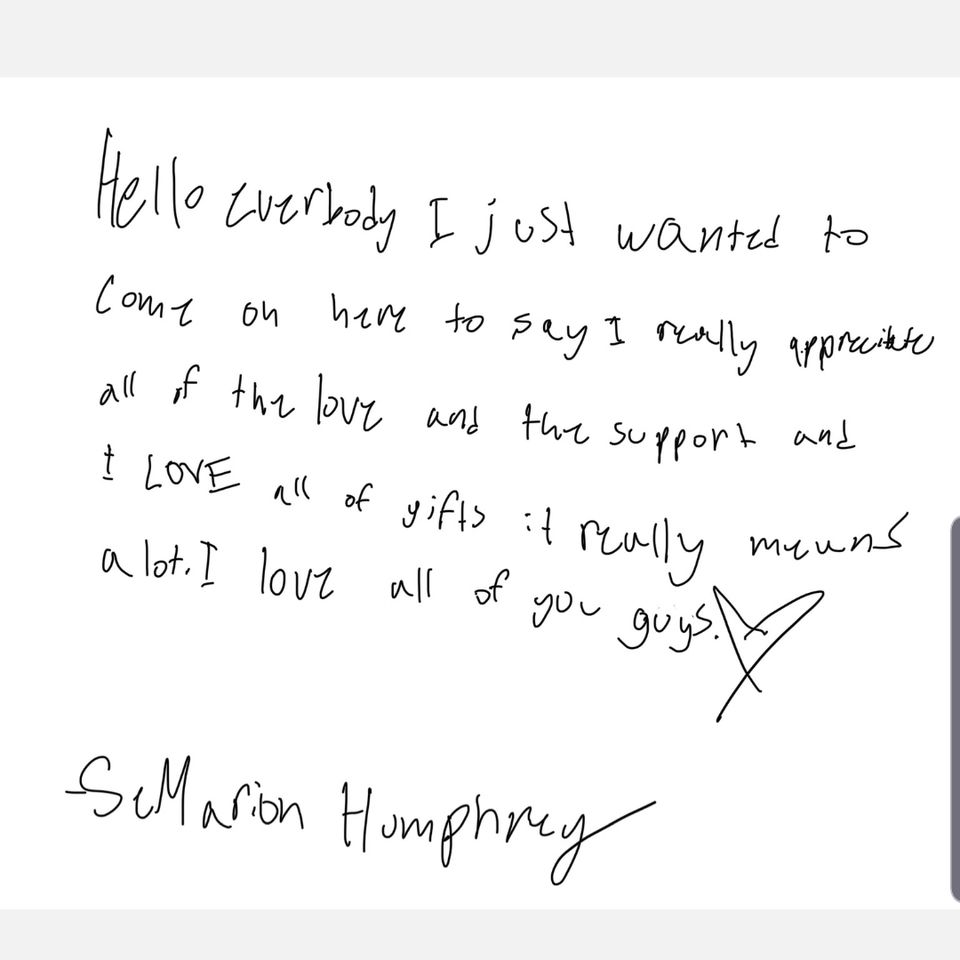 Hello everbody I just wanted to
come on here to say I really appreciate
all of the love and the support and
I LOVE all of gifts it really means
a lot. I love all of you guys.
SeMarion Humphrey